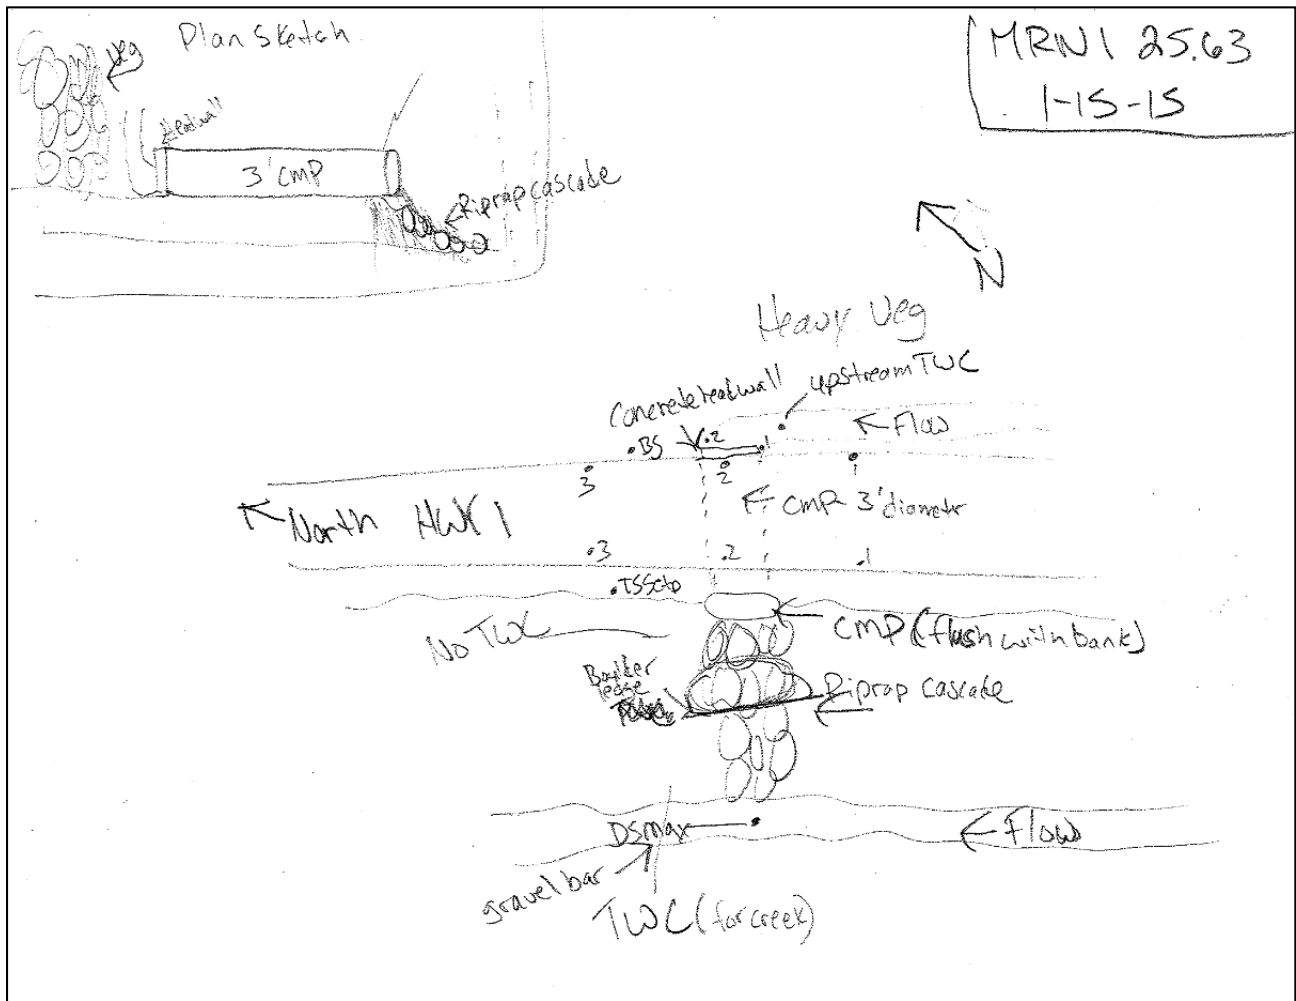 Plan Sketch
MRN1 25.63
1-15-15
veg
Headwall
3' CMP
Riprap cascade
N
Heavy Veg
Concrete headwall
upstream TWC
BS
.2
1
Flow
3
2
1
CMP 3' diameter
North HWY 1
.3
.2
.1
TSSetup
No TWC
CMP (flush with bank)
Boulder
ledge
Riprap cascade
DSmax
Flow
gravel bar
TWC (for creek)